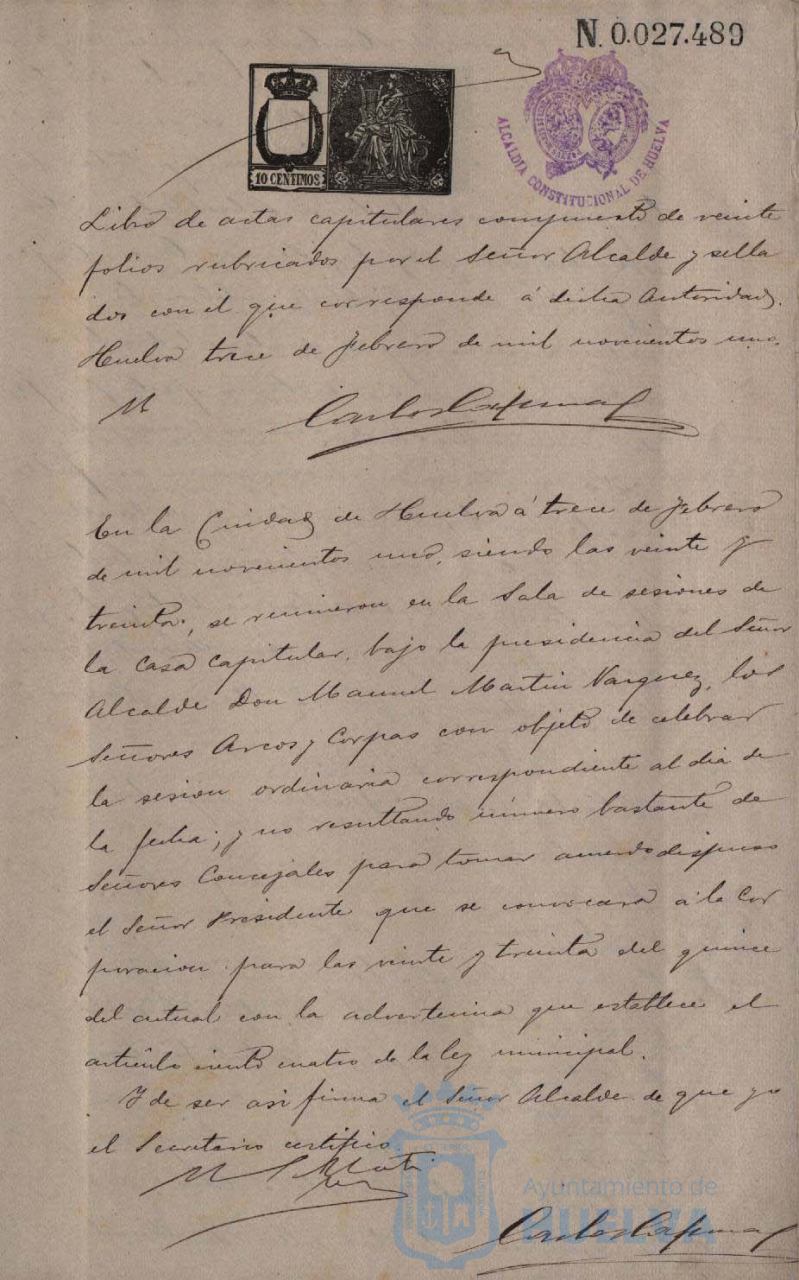 N. 0.027.489
10 CENTIMOS
ALCALDIA CONSTITUCIONAL DE HUELVA
Libro de actas capitulares compuesto de veinte
folios rubricados por el Señor Alcalde y sella
dos con el que corresponde á dicha Autoridad.
Huelva trece de Febrero de mil novecientos uno.
En la Ciudad de Huelva á trece de Febrero
de mil novecientos uno, siendo las veinte y
treinta, se reunieron en la Sala de sesiones de
la Casa Capitular, bajo la presidencia del Señor
Alcalde Don Manuel Martin Vazquez, los
Señores Arcos y Corpas con objeto de celebrar
la sesion ordinaria correspondiente al dia de
la fecha; y no resultando número bastante de
Señores Concejales para tomar acuerdo dispuso
el Señor Presidente que se convocara á la Cor
poracion para las veinte y treinta del quince
del actual con la advertencia que establece el
artículo ciento cuatro de la ley municipal.
Y de ser asi firma el Señor Alcalde de que yo
el Secretario certifico
Ayuntamiento de
HUELVA